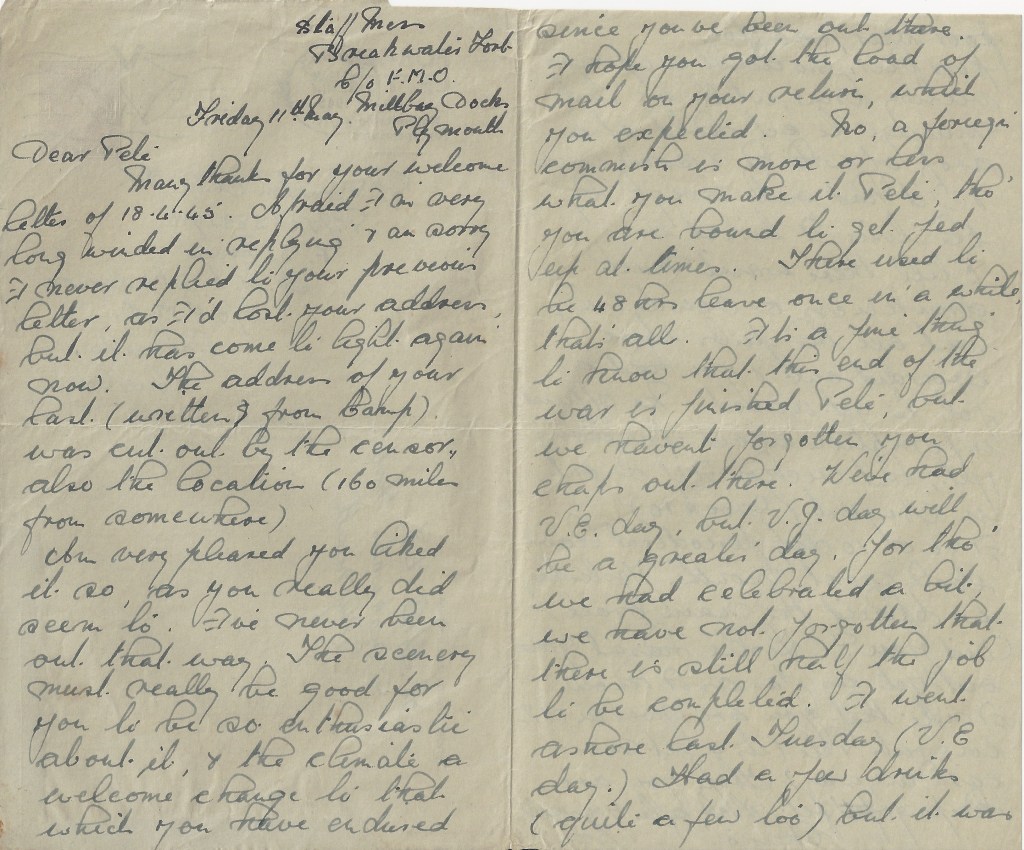 Staff Mess
Breakwater Fort
c/o F.M.O.
Millbay Docks
Friday 11th May. Plymouth
Dear Pete
Many thanks for your welcome
letter of 18.4.45. Afraid I'm very
long winded in replying & am sorry
I never replied to your previous
letter, as I'd lost your address,
but it has come to light again
now. The address of your
last (written from Camp).
was cut out by the censor,
also the location (160 miles
from somewhere)
Am very pleased you liked
it so, as you really did
seem to. I've never been
out that way. The scenery
must really be good for
you to be so enthusiastic
about it, & the climate a
welcome change to that
which you have endured
since you've been out there.
I hope you got the load of
mail on your return, which
you expected. No, a foreign
commish is more or less
what you make it Pete, tho'
you are bound to get fed
up at times. There used to
be 48 hrs leave once in a while,
that's all. It is a fine thing
to know that this end of the
war is finished Pete, but
we havent forgotten you
chaps out there. We've had
V.E. day, but V.J. day will
be a greater day. For tho'
we had celebrated a bit,
we have not forgotten that
there is still half the job
to be completed. I went
ashore last Tuesday (V.E
day.) Had a few drinks
(quite a few too) but it was